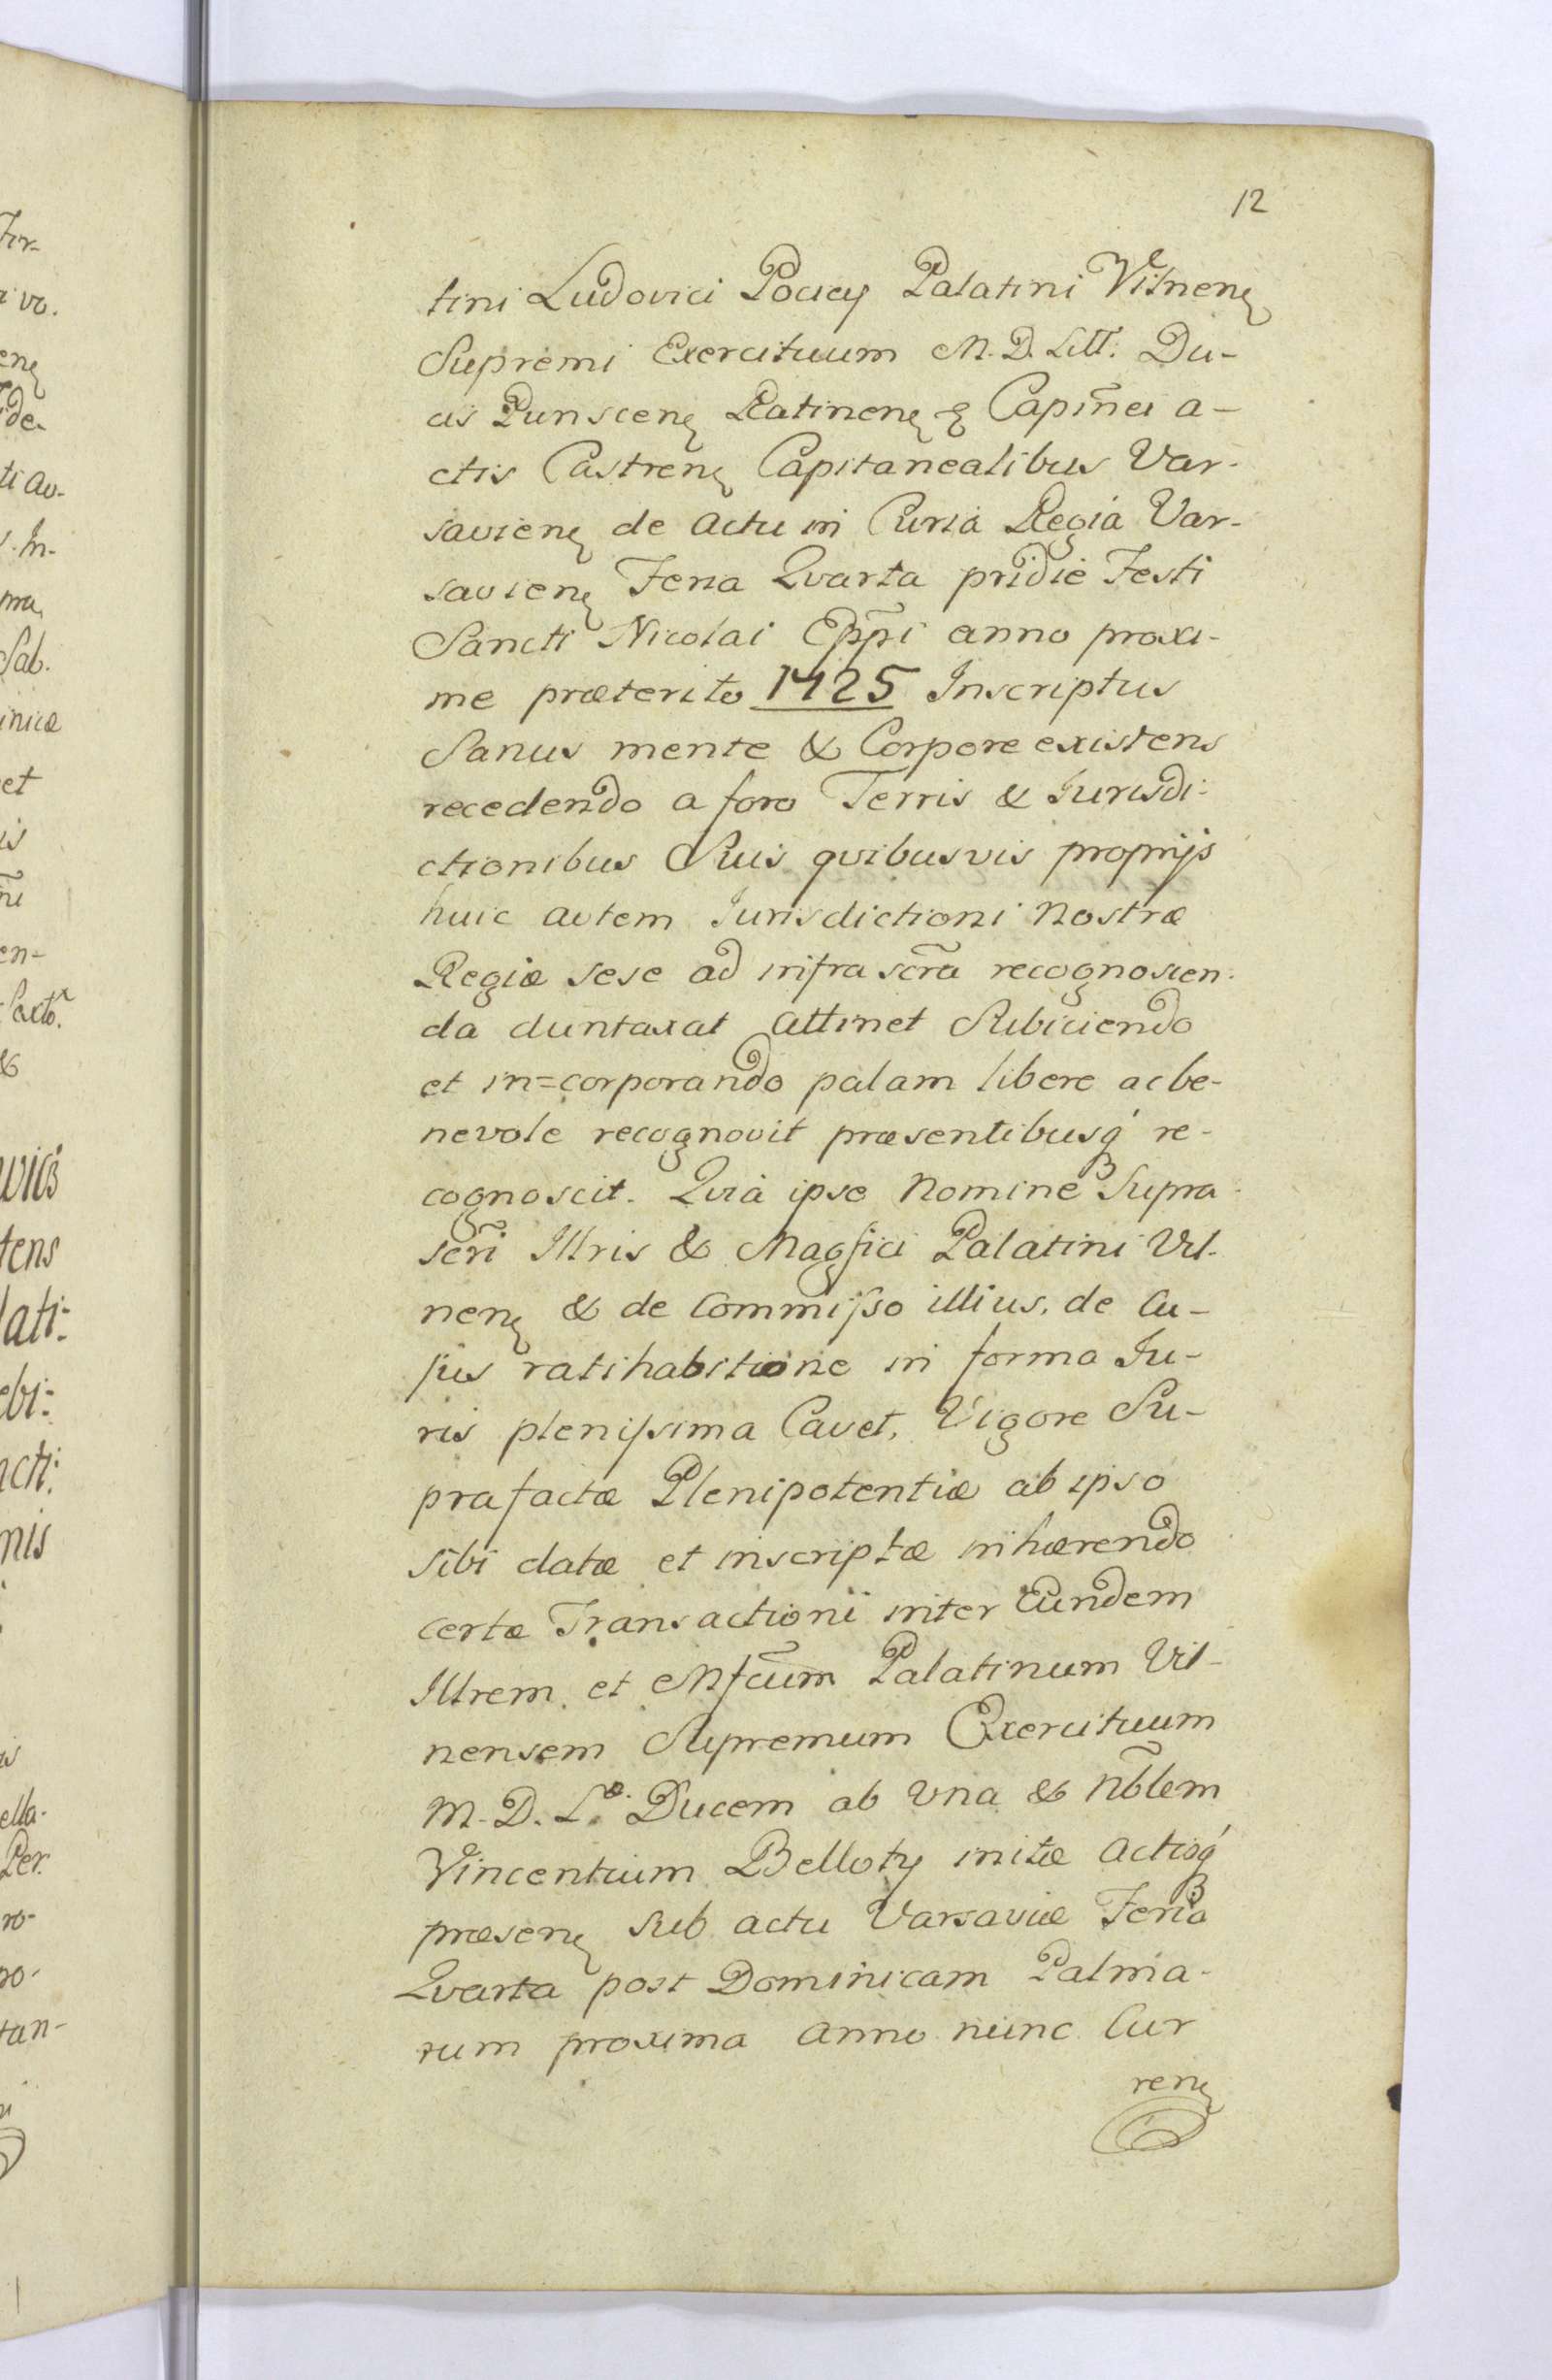 12
tini Ludovici Pociey Palatini Vilnenę
Supremi Exercituum M. D. Litt. Du-
cis Punscenę Ratinenę & Capin̄ei a-
ctis Castrenę Capitanealibus Var-
savienę de actu in Curia Regia Var-
savienę Feria Qvarta pridie Festi
Sancti Nicolai Epp̄i anno proxi-
me præterito 1725 Inscriptus
Sanus mente & Corpore existens
recedendo a foro Terris & Jurisdi-
ctionibus Suis qvibusvis proprijs
huic avtem Jurisdictioni Nostræ
Regiæ sese ad infra scr̄a recognoscen-
da duntaxat attinet Subiiciendo
et in=corporando palam libere ac be-
nevole recognovit præsentibusq́ re-
cognoscit. Qvia ipse Nomine Supra
scr̄i Illris & Magfici Palatini Vil-
nenę & de Commisso illius, de Cu-
jus ratihabitione in forma Ju-
ris plenissima Cavet, Vigore Su-
prafactæ Plenipotentiæ ab ipso
sibi datæ et inscriptæ inhærendo
certæ Transactioni inter Eundem
Illrem et Mfcūm Palatinum Vil-
nensem Supremum Exercituum
M. D. L. Ducem ab Una & Nōblem
Vincentium Belloty initæ actisq́
præsenę sub actu Varsaviæ Feria
Qvarta post Dominicam Palma-
rum proxima anno nunc Cur
renę